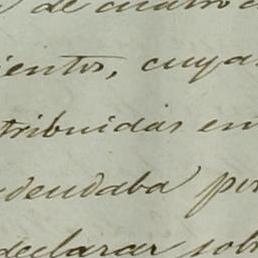 de cuatro
ientos, cuyas
tribuidas en
deudaba por
declarar sob